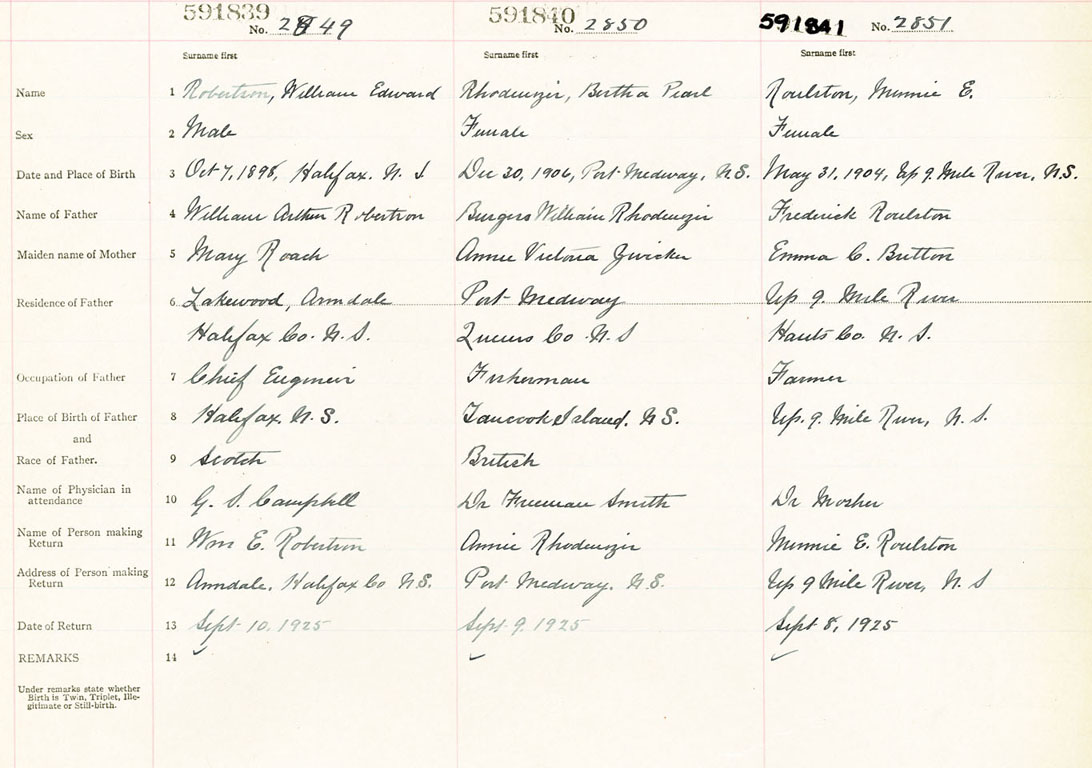 591839 No. 2849 591840 No. 2850 591841 No. 2851
Surname first Surname first Surname first
Name 1 Robertson, William Edward Rhodenizer, Bertha Pearl Roulston, Minnie E.
Sex 2 Male Female Female
Date and Place of Birth 3 Oct 7, 1898, Halifax. N. S Dec 30, 1906, Port Medway, N.S. May 31, 1904, Up 9 Mile River, N.S.
Name of Father 4 William Arthur Robertson Burgess William Rhodenizer Frederick Roulston
Maiden name of Mother 5 Mary Roach Annie Victoria Zwicker Emma C. Britton
Residence of Father 6 Lakewood, Armdale Port Medway Up 9. Mile River
Halifax Co. N. S. Queens Co. N. S Hants Co. N. S.
Occupation of Father 7 Chief Engineer Fisherman Farmer
Place of Birth of Father 8 Halifax, N. S. Tancook Island. N S. Up. 9. Mile River, N. S.
and
Race of Father. 9 Scotch British
Name of Physician in
attendance 10 G. S. Campbell Dr Freeman Smith Dr Mosher
Name of Person making
Return 11 Wm E. Robertson Annie Rhodenizer Minnie E. Roulston
Address of Person making
Return 12 Armdale. Halifax Co N.S. Port Medway. N.S. Up 9 Mile River, N. S
Date of Return 13 Sept 10. 1925 Sept. 9. 1925 Sept 8, 1925
REMARKS 14
Under remarks state whether
Birth is Twin, Triplet, Ille-
gitimate or Still-birth.